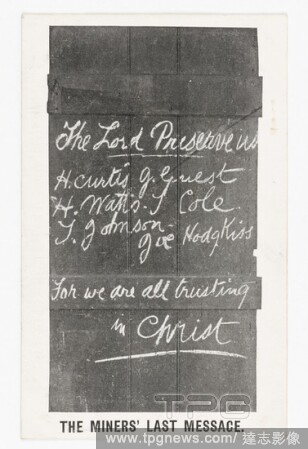 The Lord Preserve us
H. Curtis J. Guest
H. Watis. T Cole.
T. Johnson.
Joe Hodgkiss
For we are all trusting
in Christ
THE MINERS' LAST MESSAGE.
TPG
www.tpgnews.com/達志影像